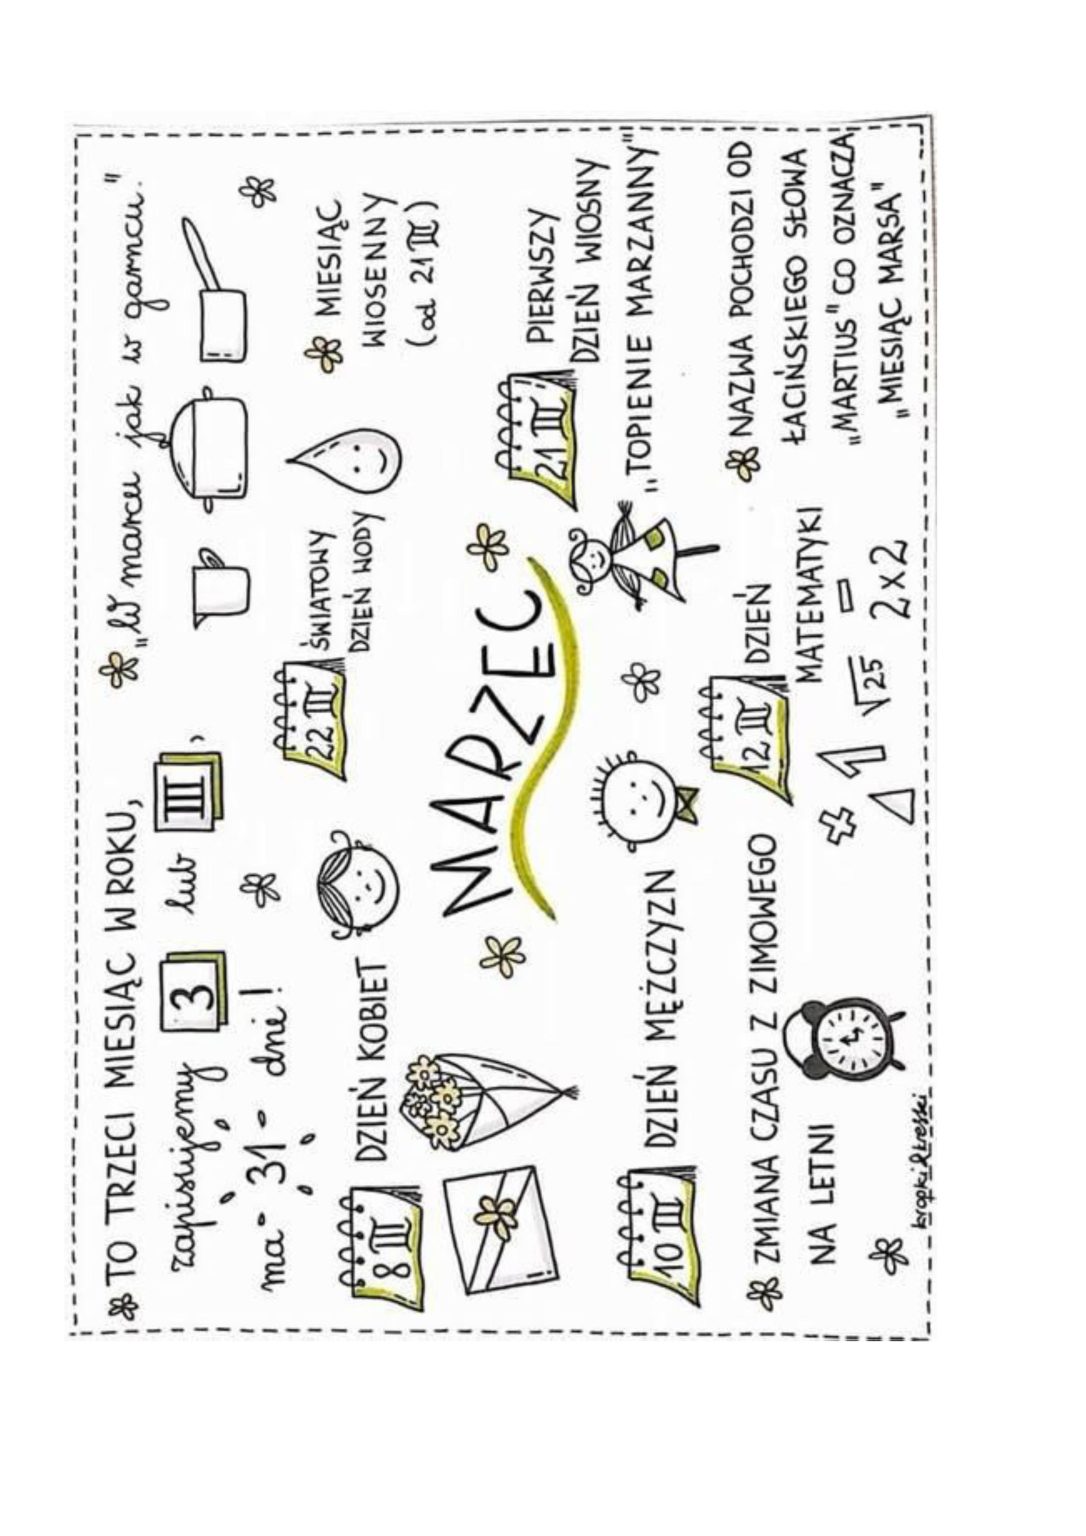 TO TRZECI MIESIĄC W ROKU,
zapisujemy 3 lub III,
ma - 31 - dni!
"W marcu jak w garncu."
8 III
DZIEŃ KOBIET
22 III
ŚWIATOWY
DZIEŃ WODY
MIESIĄC
WIOSENNY
(od 21 III)
MARZEC
21 III
PIERWSZY
DZIEŃ WIOSNY
"TOPIENIE MARZANNY"
10 III
DZIEŃ MĘŻCZYZN
ZMIANA CZASU Z ZIMOWEGO
NA LETNI
12 III
DZIEŃ
MATEMATYKI
+ 1 √25 -
2x2
NAZWA POCHODZI OD
ŁACIŃSKIEGO SŁOWA
„MARTIUS" CO OZNACZA
„MIESIĄC MARSA"
kropki&kreski